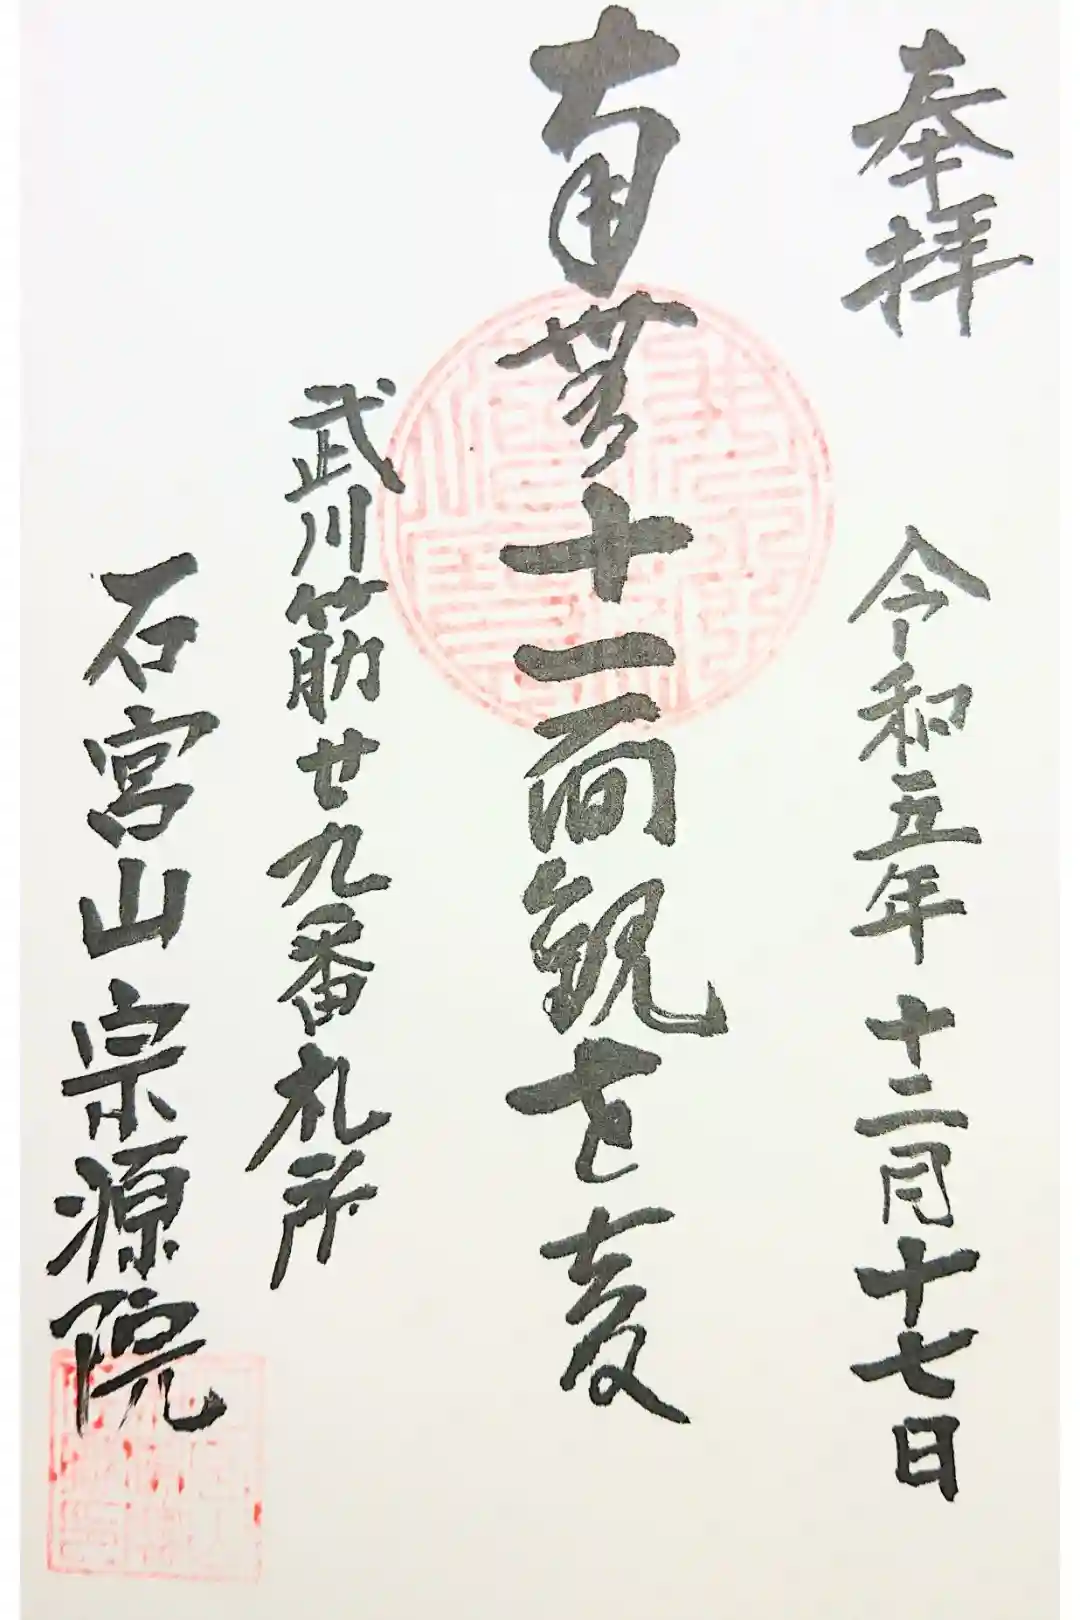 奉拝 令和五年十二月十七日
南無十一面観世音
武川筋廿九番札所
石宮山宗源院